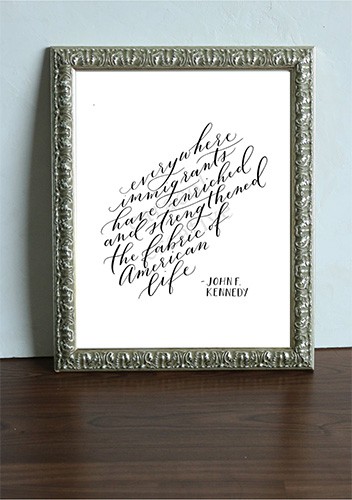 everywhere
immigrants
have enriched
and strengthened
the fabric of
American
life
-JOHN F.
KENNEDY